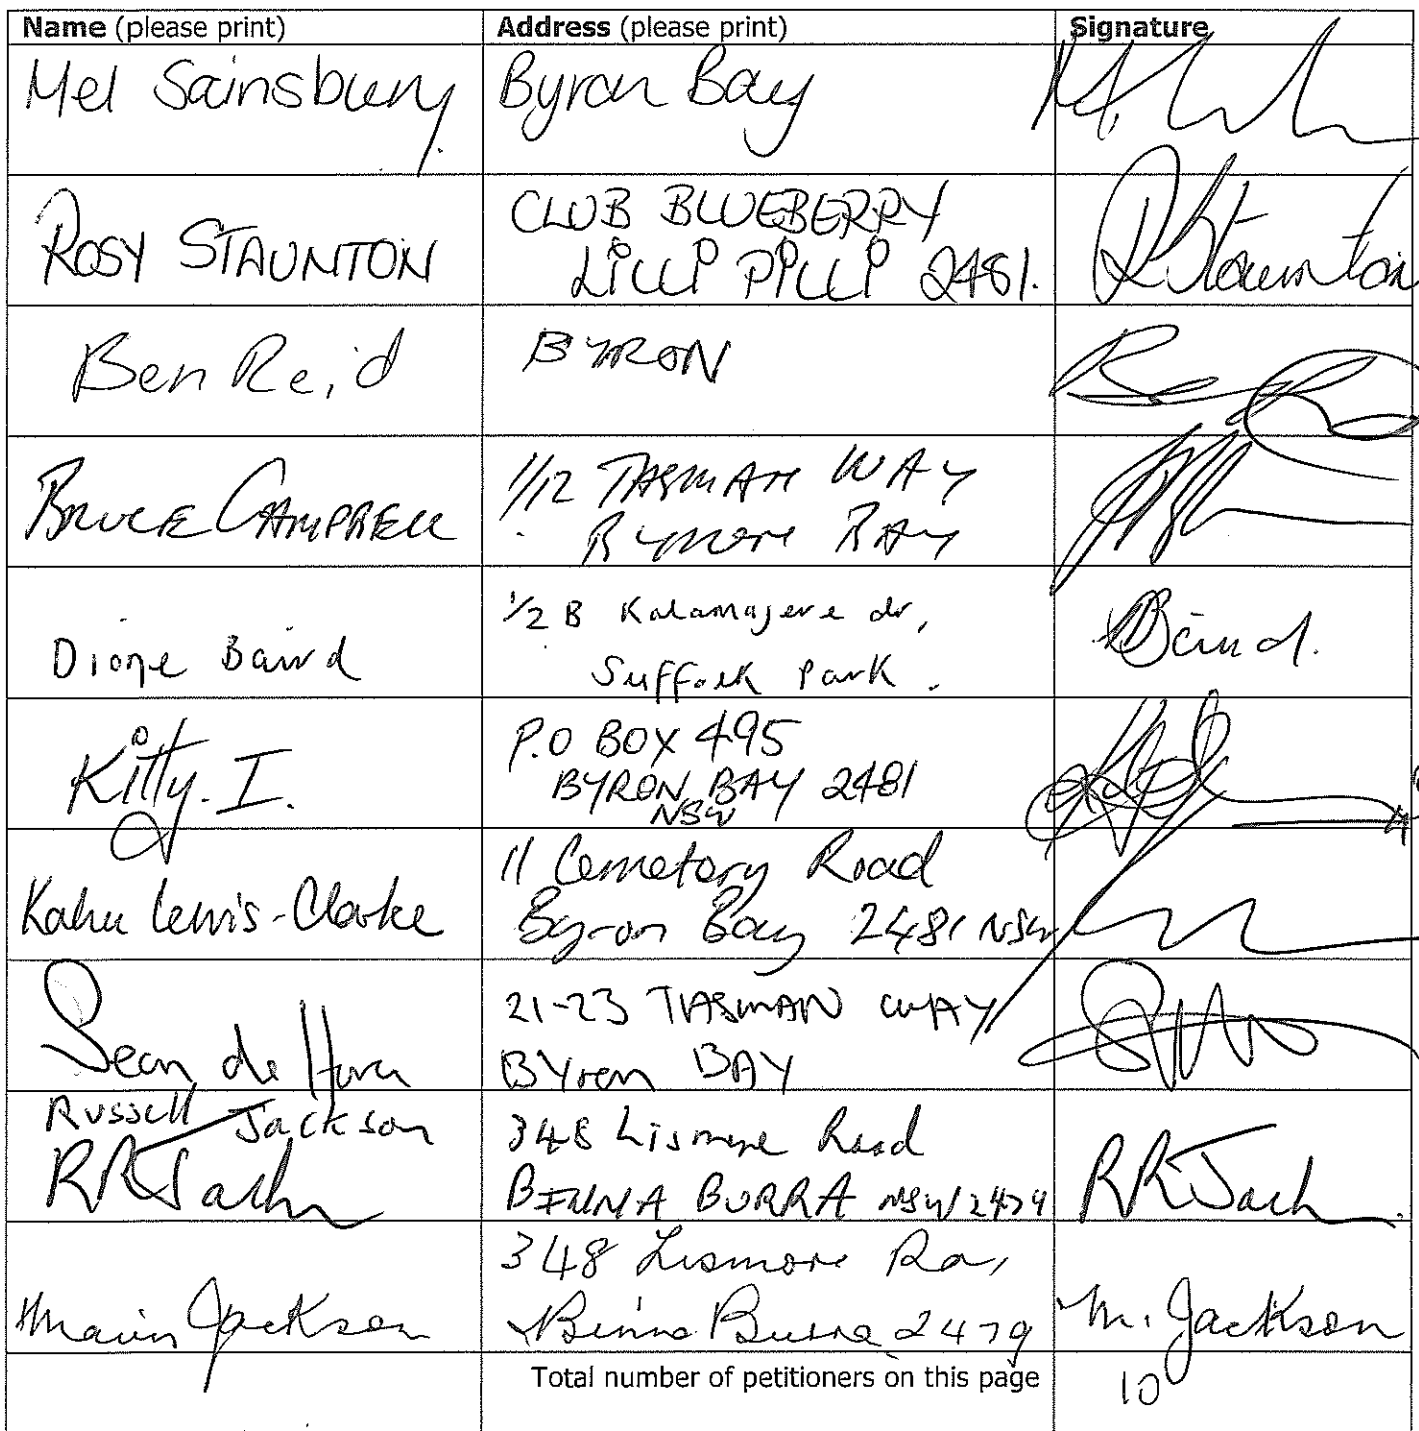 Name (please print) Address (please print) Signature
Mel Sainsbury Byron Bay
ROSY STAUNTON CLUB BLUEBERRY
LILLI PILLI 2481. RStaunton
Ben Reid BYRON
BRUCE CAMPBELL 1/12 TASMAN WAY
BYRON BAY
Dione Baird 1/2 B Kalamajere dr,
Suffolk Park. Baird.
Kitty. I. P.O BOX 495
BYRON BAY 2481
NSW
Kahu Lewis-Clarke 11 Cemetery Road
Byron Bay 2481 NSW
Sean de 21-23 TASMAN WAY
BYron BAY
Russell Jackson 348 Lismore Road
RRJack BINNA BURRA NSW 2479 RRJack
Jackson 348 Lismore Rd,
Binna Burra 2479 M. Jackson
Total number of petitioners on this page 10